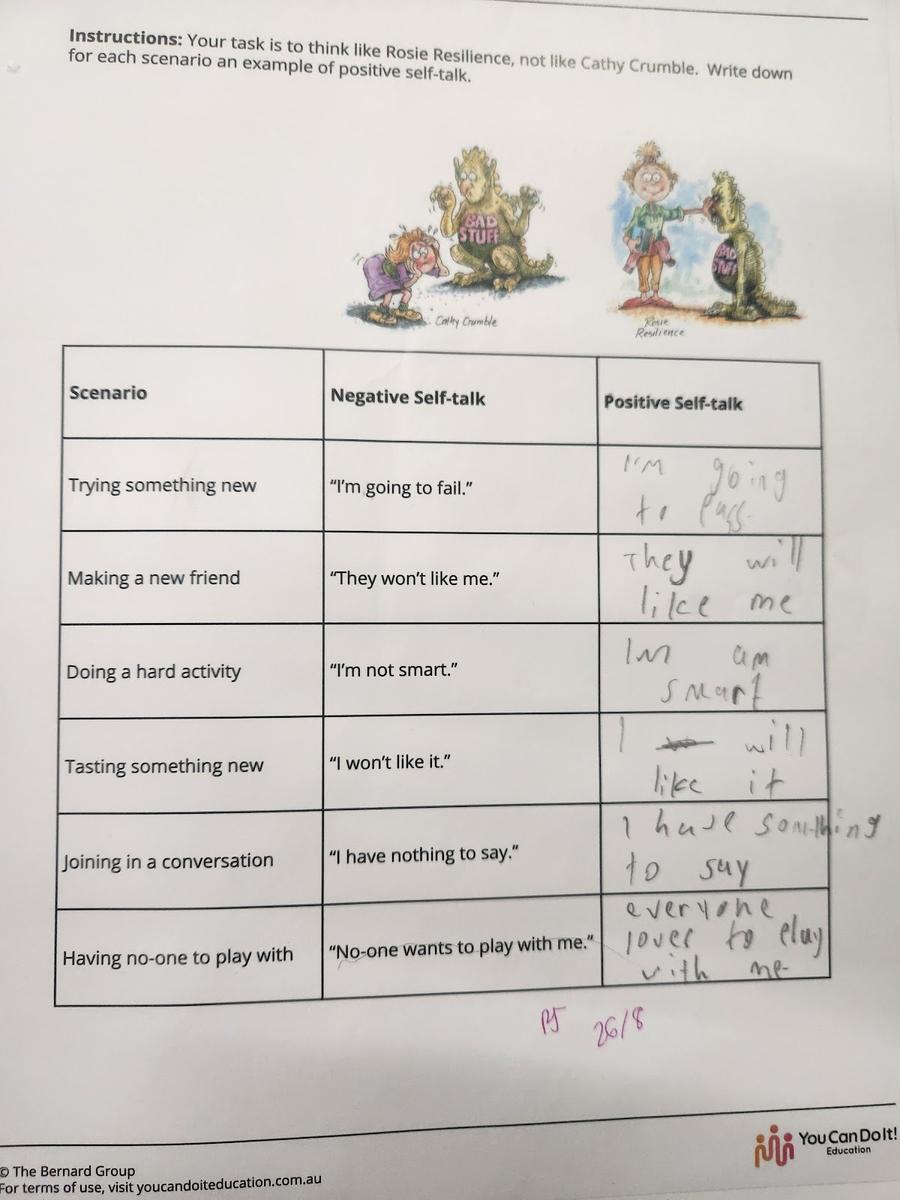 Instructions: Your task is to think like Rosie Resilience, not like Cathy Crumble. Write down
for each scenario an example of positive self-talk.
BAD
STUFF
BAD
STUFF
Cathy Crumble
Rosie
Resilience
Scenario
Negative Self-talk
Positive Self-talk
Trying something new
“I’m going to fail.”
I'm going
to pass.
Making a new friend
“They won’t like me.”
They will
like me
Doing a hard activity
“I’m not smart.”
Im am
smart
Tasting something new
“I won’t like it.”
I will
like it
Joining in a conversation
“I have nothing to say.”
I have something
to say
Having no-one to play with
“No-one wants to play with me.”
everyone
loves to play
with me
26/8
You Can Do It!
Education
© The Bernard Group
For terms of use, visit youcandoiteducation.com.au